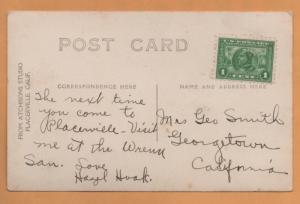 POST CARD
FROM ATCHISONS STUDIO
PLACERVILLE, CALIF.
CORRESPONDENCE HERE
NAME AND ADDRESS HERE
The next time
you come to
Placerville - Visit
me at the Wrenn
San. Love
Hazel
Mrs Geo Smith
Georgetown
California
1 CENT 1